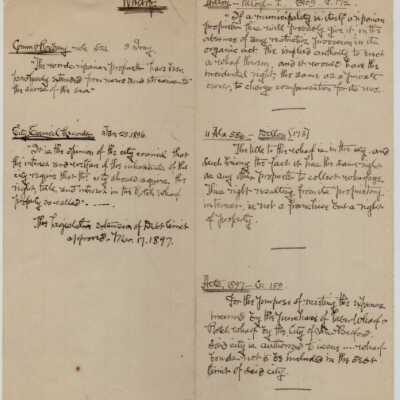 Wharf
Commonwealth
"The words riparian proprietor have been
properly extended from rivers and streams to
the shores of the sea."
City Council Records Jan 23 1896.
"It is the opinion of the city council that
the interest and welfare of the inhabitants of the
city require that the city should acquire the
rights, title, and interest in the Rotch Wharf
property so-called."
This legislative extension of Debt limit
approved Mar. 17. 1897.
"If a municipality is itself a riparian
proprietor this will probably give it, in the
absence of any restrictive provision in the
organic act, the implied authority to erect
a wharf thereon, and it would have the
incidental right, the same as a private
owner, to charge compensation for its use.
11 Ala 586 - Dillon (173)
The title to the wharf is in the city and
such being the fact it has the same right
as any other proprietor to collect wharfage.
This right resulting from the proprietary
interest is not a franchise but a right
of property.
Acts, 1897 - Ch. 159
For the purpose of meeting the expense
incurred by the purchase of Wharf -
Rotch wharf by the City of New Bedford
said city is authorized to issue wharf
bonds not to be included in the debt
limit of said city.